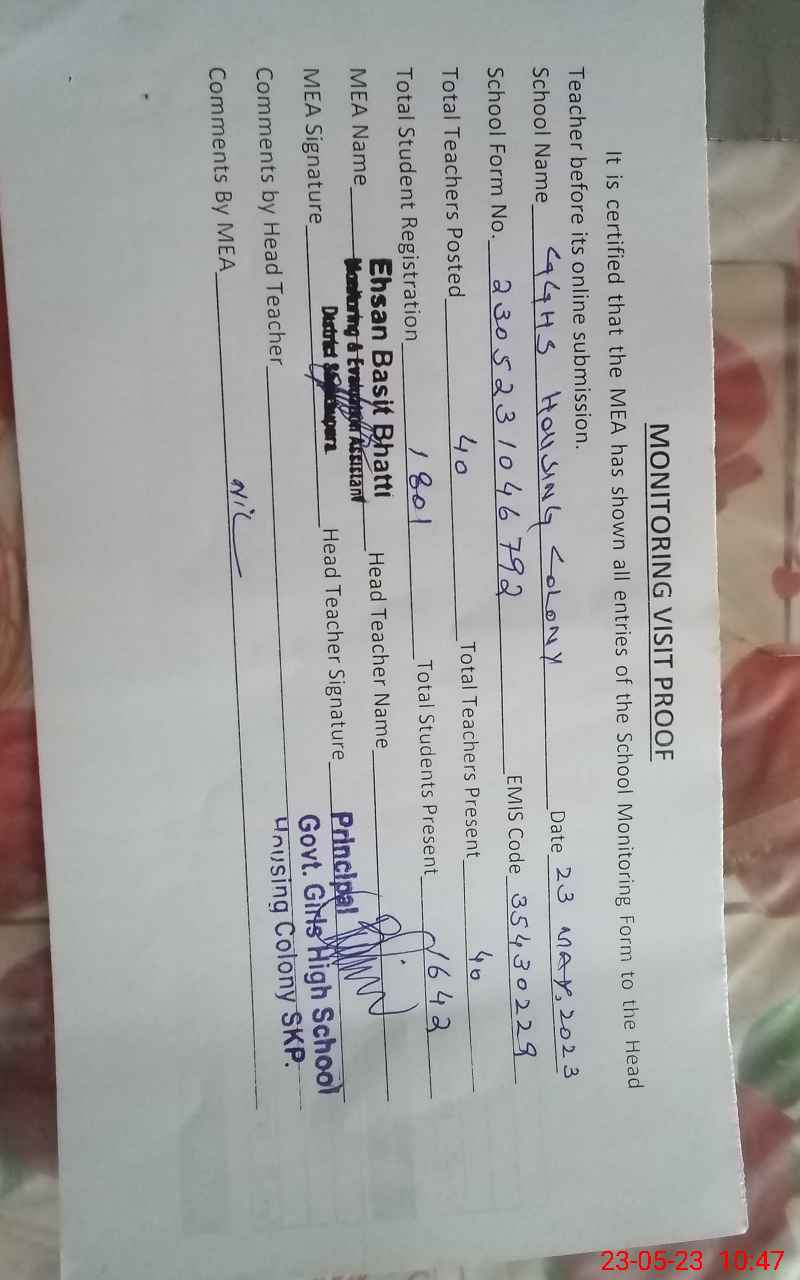 MONITORING VISIT PROOF
It is certified that the MEA has shown all entries of the School Monitoring Form to the Head
Teacher before its online submission.
School Name GGHS HOUSING COLONY Date 23 MAY, 2023
School Form No. 230523 1046792 EMIS Code 35430229
Total Teachers Posted 40 Total Teachers Present 40
Total Student Registration 1801 Total Students Present 1642
MEA Name Ehsan Basit Bhatti Head Teacher Name
Monitoring & Evaluation Assistant
District Sheikhupura
MEA Signature Head Teacher Signature Principal
Govt. Girls High School
Housing Colony SKP.
Comments by Head Teacher
Comments By MEA NIL
23-05-23 10:47